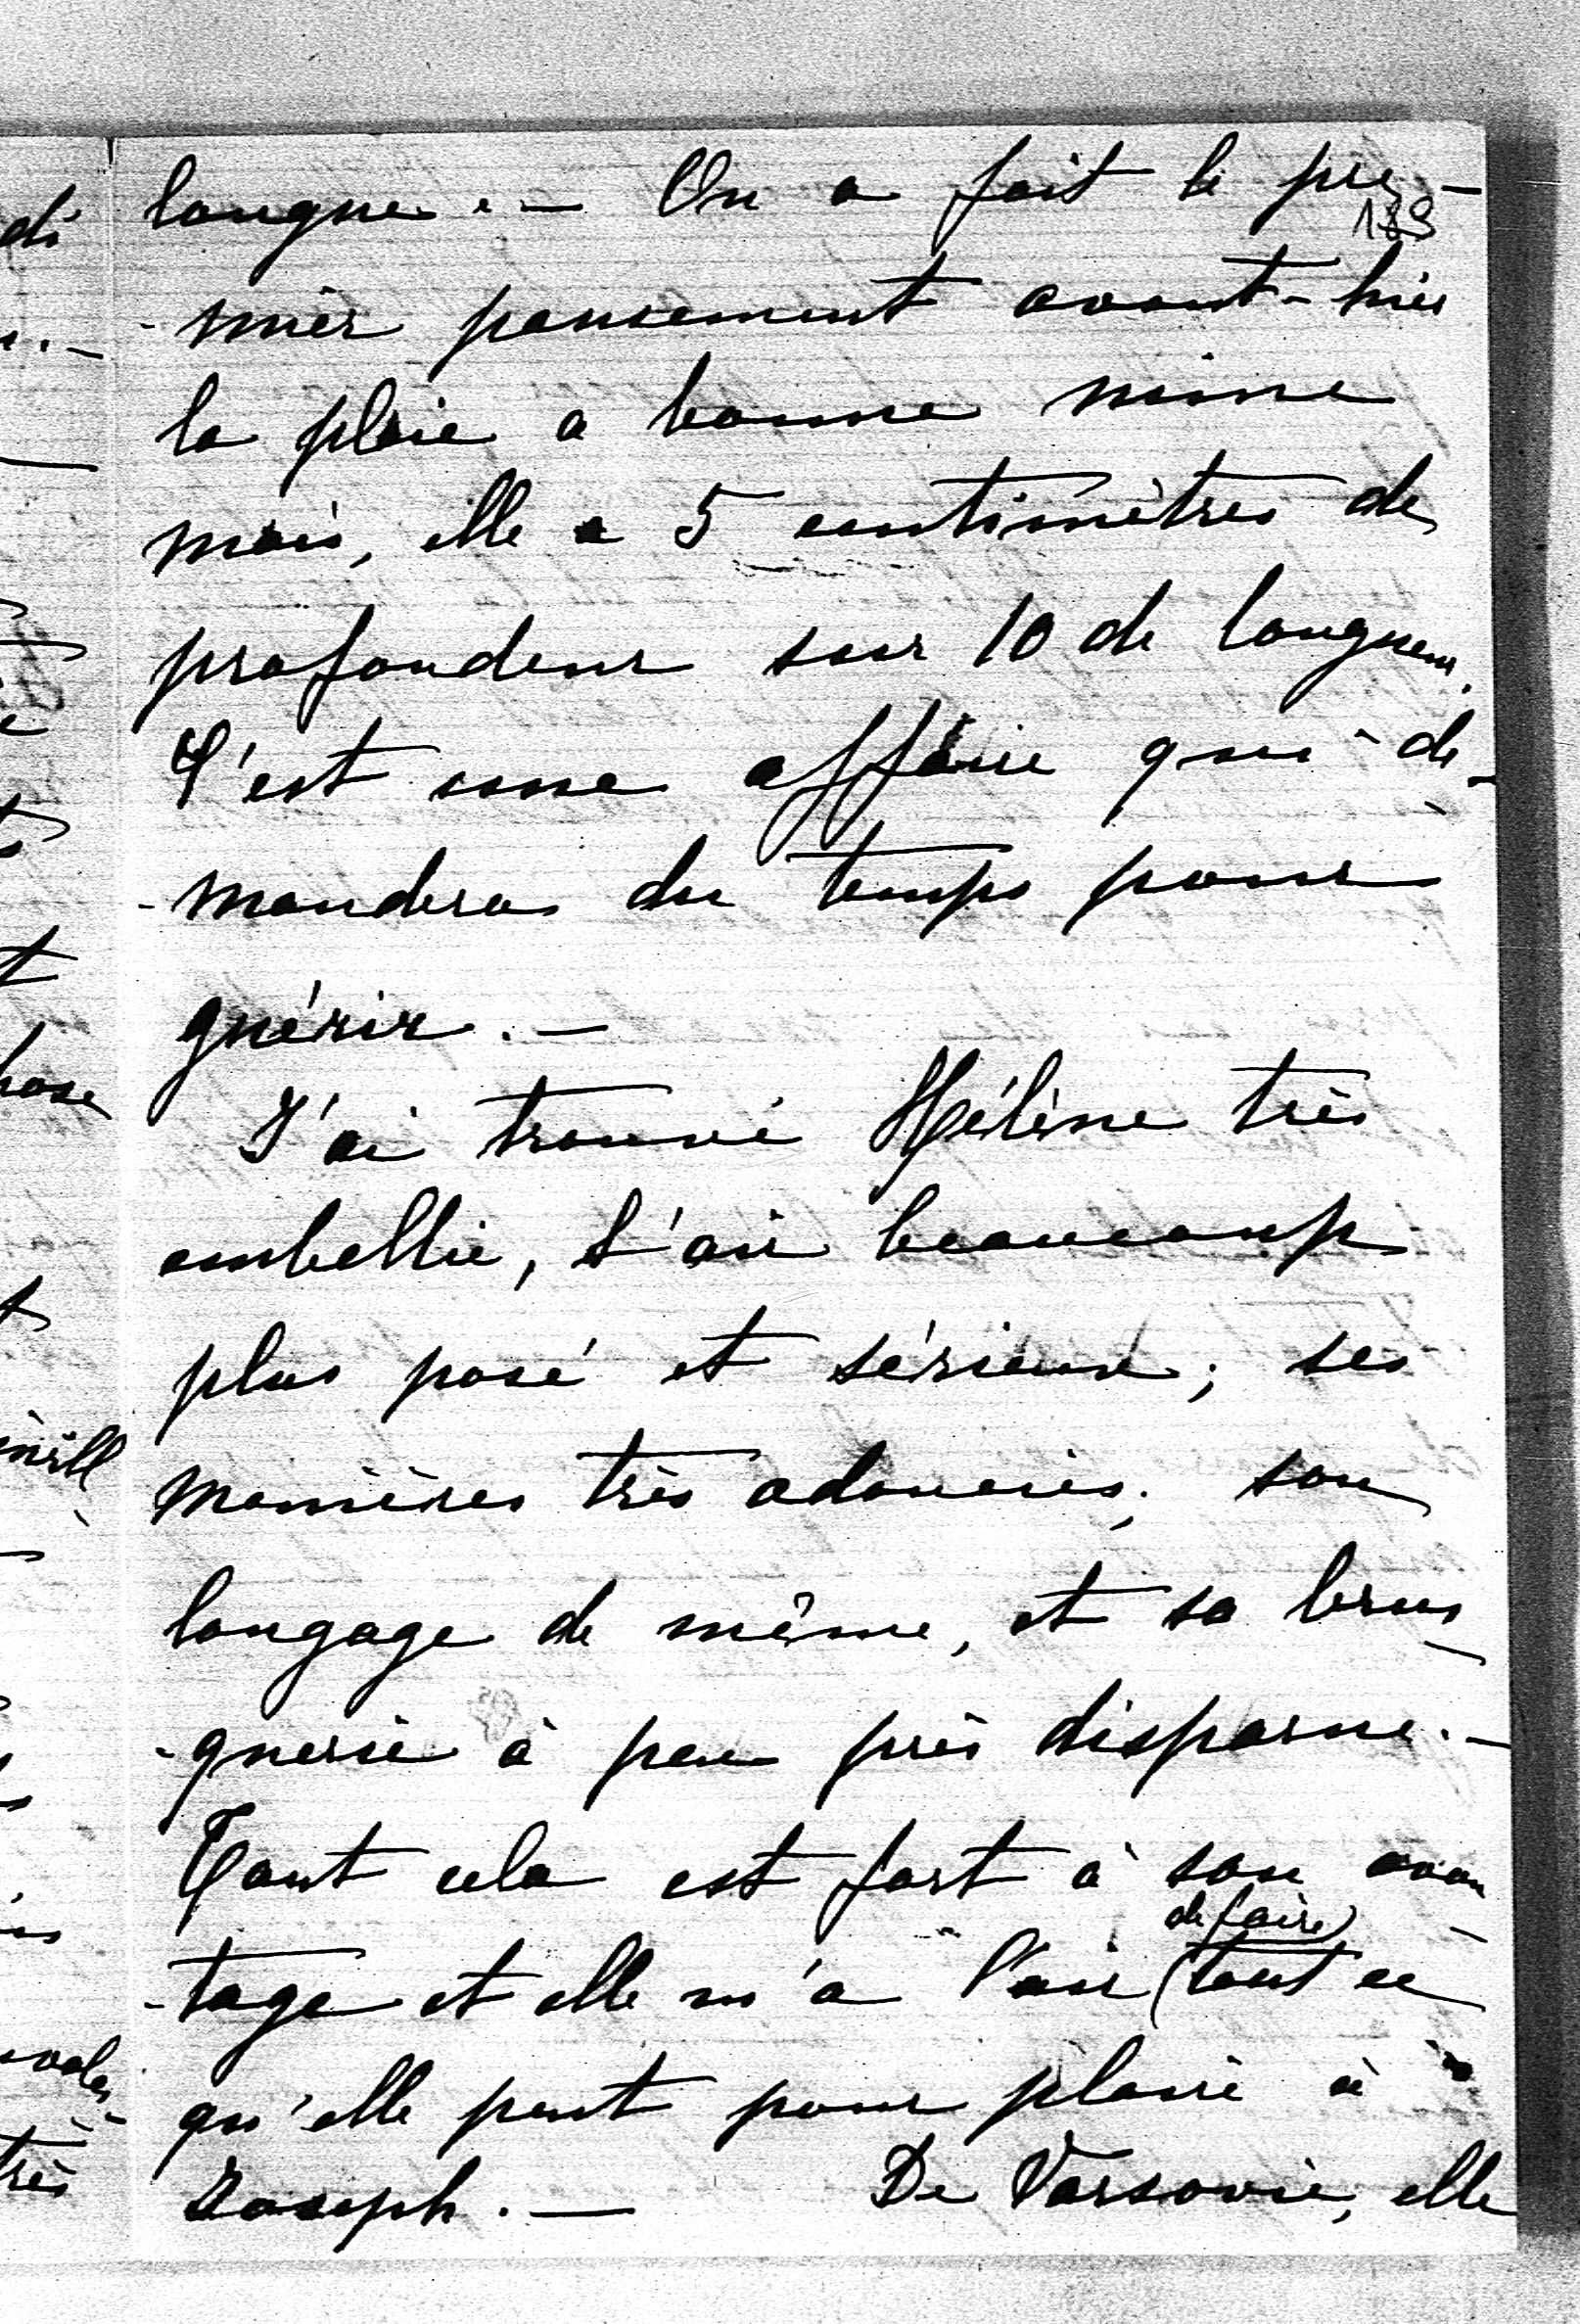 longue. — On a fait le pre-
189
-mier pansement avant-hier
la plaie a bonne mine
mais, elle a 5 centimètres de
profondeur sur 10 de longueur.
C'est une affaire qui de-
-mandera du temps pour
guérir. —
J'ai trouvé Hélène très
embellie, l'air beaucoup
plus posé et sérieux; ses
manières très adoucies, son
langage de même, et sa brus-
-querie à peu près disparue. —
Tout cela est fort à son avan-
de faire
-tage et elle m'a l'air (tout ce
qu'elle peut pour plaire à
Joseph. — De Varsovie, elle